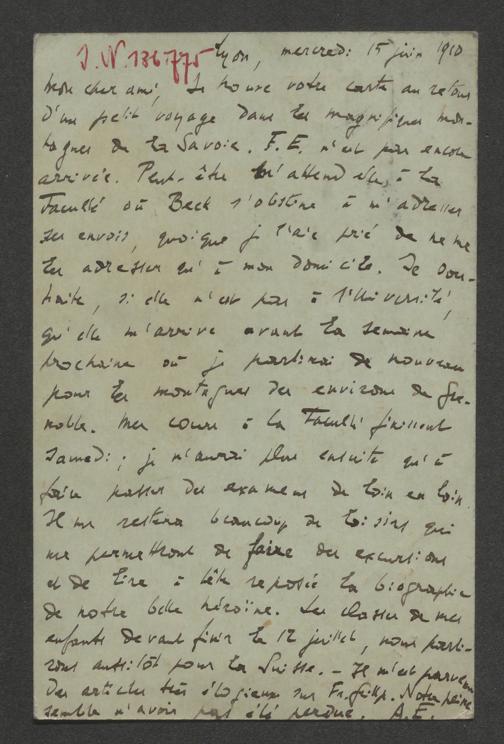 J. N. 136775
Lyon, mercredi 15 juin 1910
Mon cher ami, Je trouve votre carte au retour
d'un petit voyage dans les magnifiques mon-
tagnes de la Savoie. F. E. n'est pas encore
arrivée. Peut-être m'attend-elle à la
Faculté où Beck s'obstine à m'adresser
ses envois, quoique je l'aie prié de ne me
les adresser qu'à mon domicile. Je sou-
haite, si elle n'est pas à l'Université,
qu'elle m'arrive avant la semaine
prochaine où je partirai de nouveau
pour les montagnes des environs de Gre-
noble. Mes cours à la Faculté finissent
samedi ; je n'aurai plus ensuite qu'à
faire passer des examens de loin en loin.
Il me restera beaucoup de loisirs qui
me permettront de faire des excursions
et de lire à tête reposée la biographie
de notre belle héroïne. Les classes de mes
enfants devant finir le 12 juillet, nous parti-
rons aussitôt pour la Suisse. – Il m'est parvenu
des articles très élogieux sur Fr. Grillp. Notre peine
semble n'avoir pas été perdue. A. E.